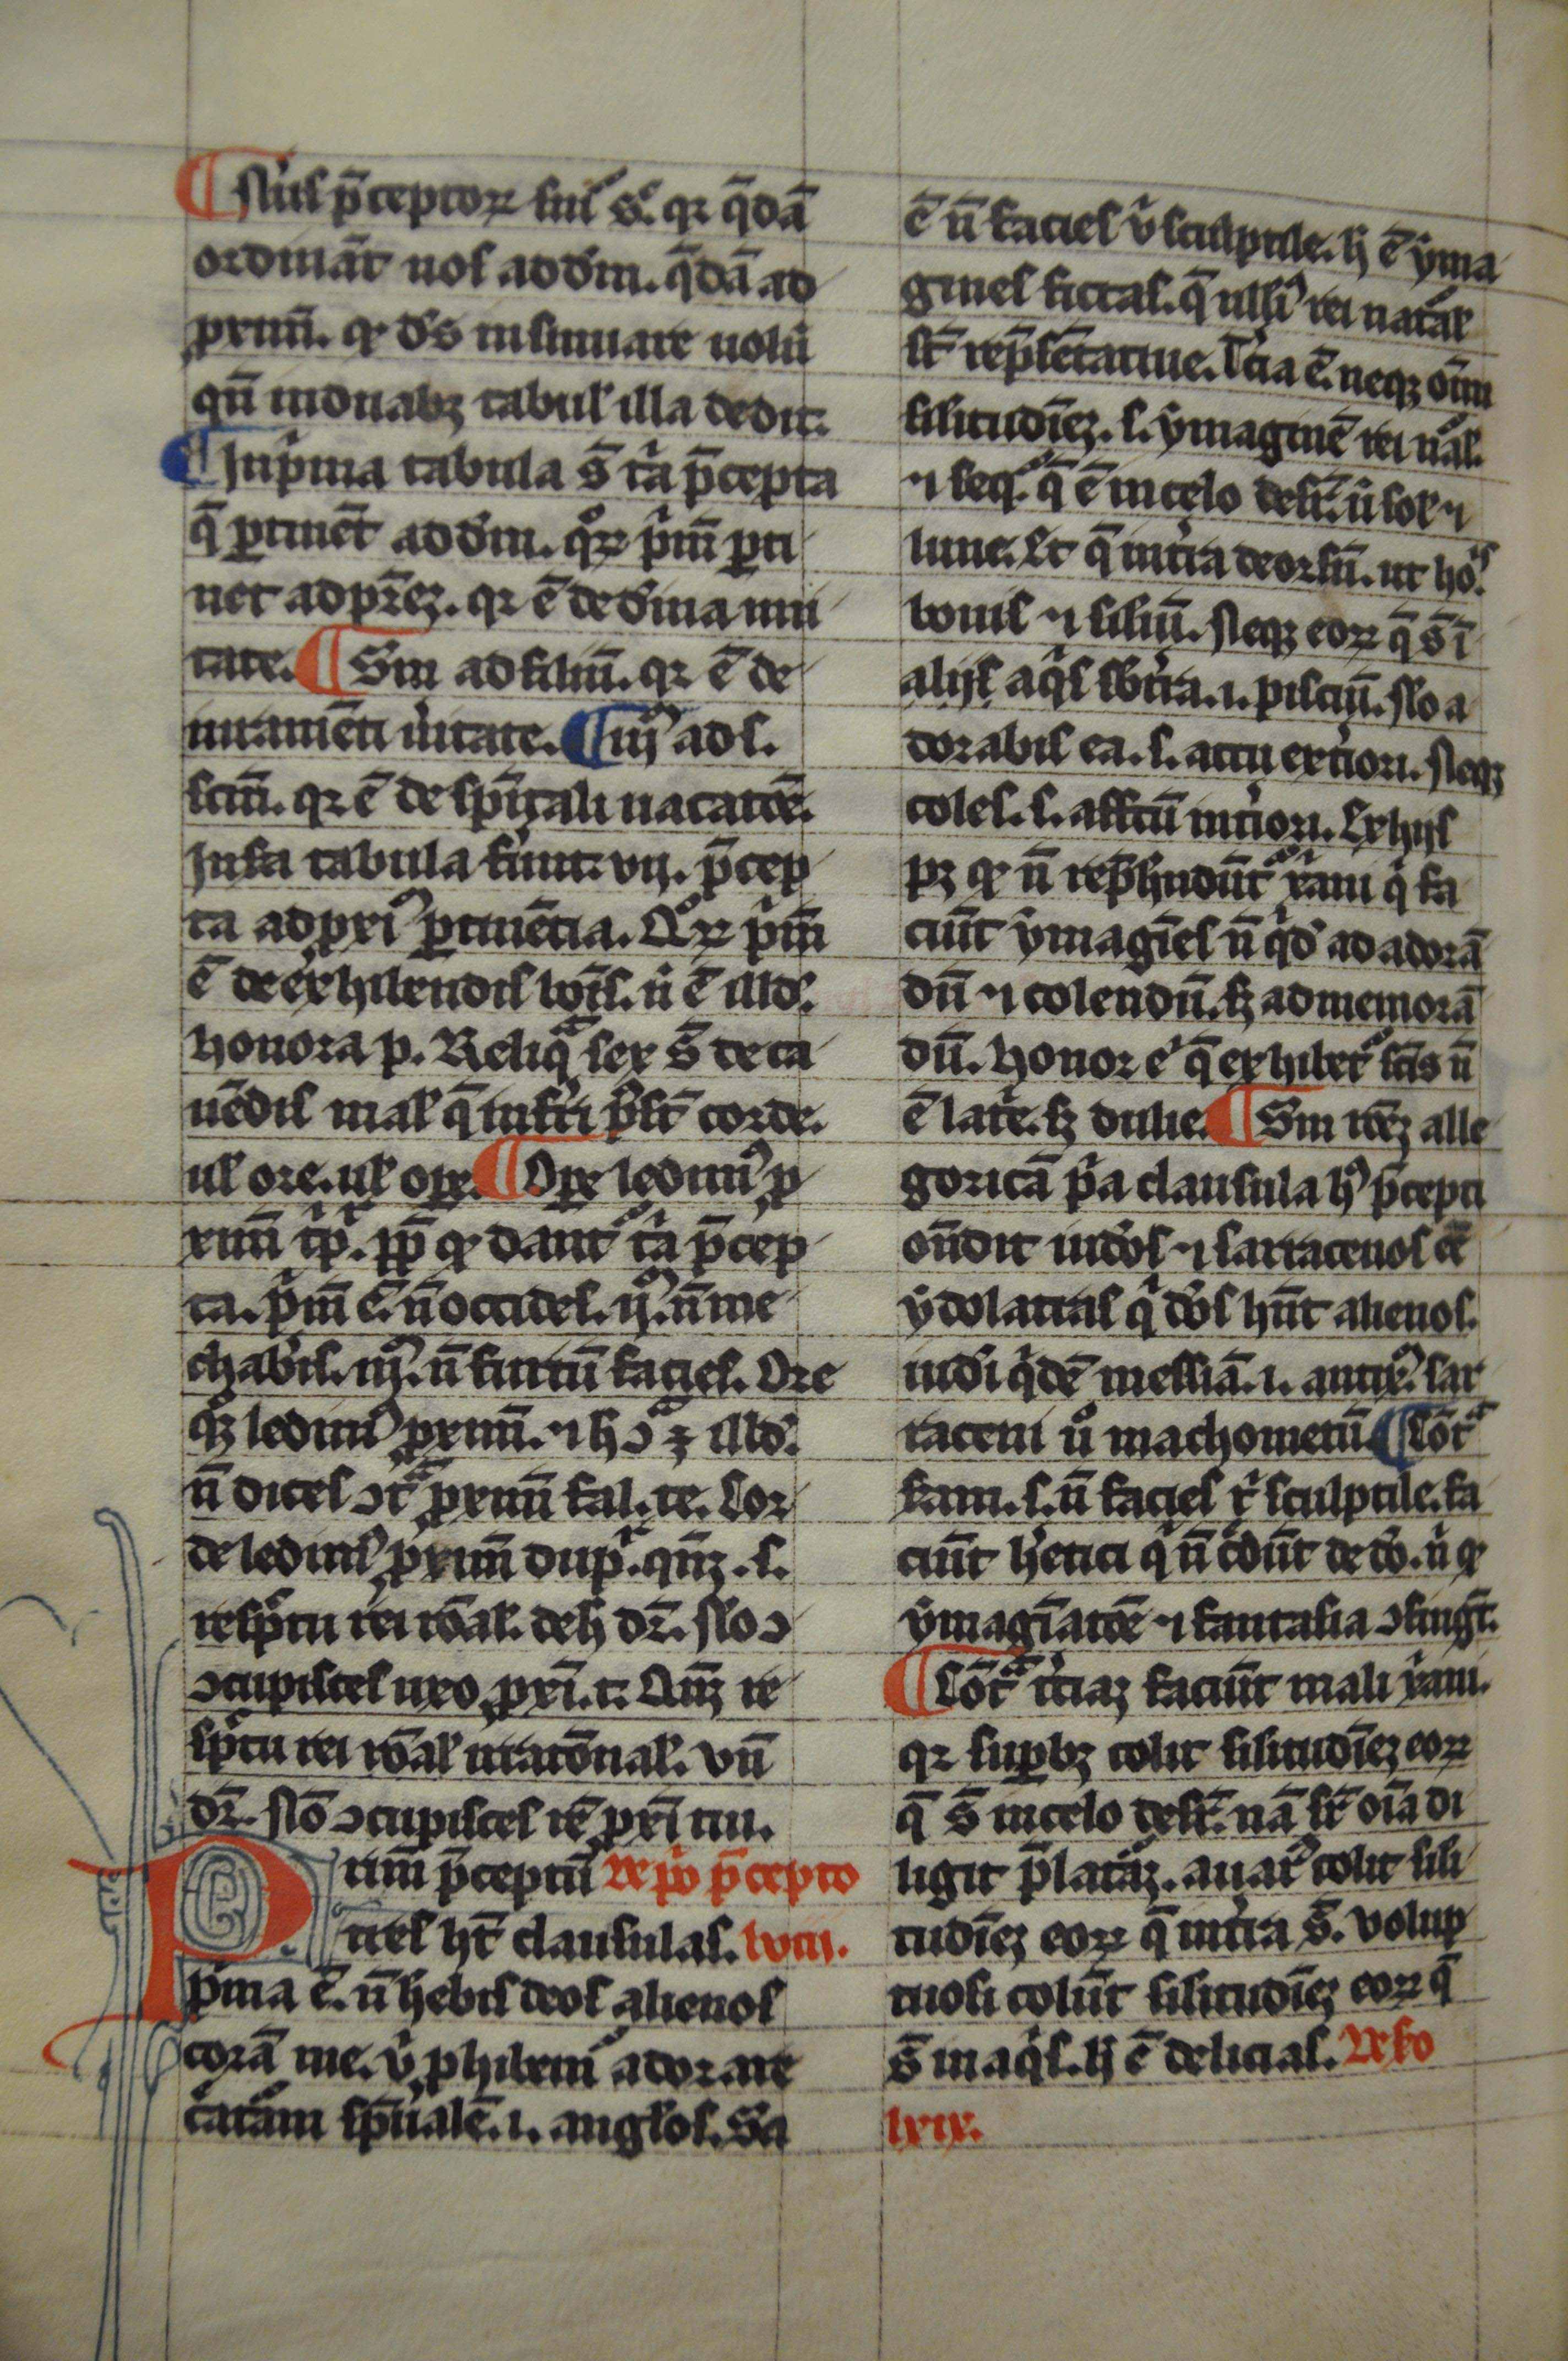 ¶ Nu᷒s p̄ceptoꝝ su᷒ S᷒. qꝛ q̄dā
ordinānt nos ad dm̄. q̄dā ad
ꝓximū. qꝛ ds̄ insinuare uoluit
qn̄ in duabꝫ tabul᷒ illa dedit.
¶ In pͥma tabula s̄t tͥa p̄cepta
q̄ ꝑtinēt ad dm̄. qͦꝝ pͥmū ꝑti
net ad pr̄eꝫ. qꝛ ē de diuina uni
tate. ¶ Sm̄ ad filiū. qꝛ ē de
iuramēti ueritate. ¶ iijᵐ ad s.
scm̄. qꝛ ē de spūali uacatōe.
Infͣ tabula fuerūt .vij. p̄cep
ta ad ꝓxīᵒ ꝑtinētia. Qͦꝝ pͥmū
ē de exhibendis bōis. ut ē illd᷒.
honora p. Reliqͣ sex s̄t de ca
uēdis mal᷒ q̄ inferri pn̄t corde.
ul᷒ ore. ul᷒ oꝑe. ¶ Oꝑe ledimꝰ ꝓ
ximū tͥpͬ. ꝓpꝑ qꝛ dant᷒ tͥa p̄cep
ta. pͥmū ē. n̄ occides. ijᵐ. n̄ me
chab᷒is. iijᵐ. n̄ furtū facies. Ore
qͦqꝫ ledimꝰ ꝓximū. ⁊ h̄ ꝯͣ ē illd᷒.
n̄ dices ꝯtͣ ꝓximū fal. te. Cor
de ledimꝰ ꝓximū dupͬ. qn̄qꝫ. s.
respc̄tu rei rōal᷒. de h̄ dr̄. Nō ꝯ
ꝯcupisces uxō ꝓxī. t. Qn̄qꝫ re
spc̄tu rei rōal᷒ irratōnal᷒. vn̄
dr̄. Nō ꝯcupisces rē ꝓxī tui.
Primū p̄ceptū De pͥo p̄cepto
tres ht̄ clausulas. lviii.
pͥma ē. n̄ hēbis deos alienos
corā me. vͥ ꝓhibem᷒ adorare
cͣatͣam spūalē. i. angl᷒os. Sa
ē n̄ facies tͥ sculptile. h̄ ē yma
gines fictas. q̄ nulliꝰ rei natͣal᷒
st̄ rep̄sētatiue. T᷒cia ē. neqꝫ oīm
silitudīeꝫ. s. ymaginē rei nͣal᷒.
⁊ seqͬ. q̄ ē in celo desuꝑ. ut sol᷒ ⁊
lune. Et q̄ in t᷒ra deorsū. ut hoīs
bouis ⁊ siliū. Neqꝫ eoꝝ q̄ s̄t ī
alijs aqͥs sb᷒ t᷒ra. i. pisciū. Nō a
dorabis ea. s. actu ext᷒iori. Neqꝫ
coles. s. affc̄u int᷒iori. Ex hijs
pꝫ qꝛ n̄ rep̄hndūt᷒ xͥani qͥ fa
ciūt ymagīes n̄ qͥd᷒ ad adorā
dū ⁊ colendū. sꝫ ad memorā
dū. honor eͥ q̄ exhibet᷒ scīs n̄
ē lat᷒e. sꝫ dulie. ¶ Sm̄ rēꝫ alle
goricā pͥa clausula hꝰ p̄cepti
on̄dit iudeos ⁊ sarracenos ee᷒
ydolatras qͥ deos hn̄t alienos.
iudei qͥdē messiā. i. antixͫ. sar
raceni uͦ machometū. ¶ Cōtͣ
fam. s. n̄ facies tͥ sculptile. fa
ciūt heretici qͥ n̄ cͦdūt de deo. ut qꝛ
ymagīatōe ⁊ fantasia ꝯfingūt.
¶ Cōtͣ t᷒ciaꝫ faciūt mali xͥani.
qꝛ suꝑbꝫ colit silitudīeꝫ eoꝝ
q̄ s̄t in celo desuꝑ. nā suꝑ oīa di
ligit p̄latͣaꝫ. auarꝰ colit sili
tudīeꝫ eoꝝ q̄ in t᷒ra s̄t. volup
tuosi colūt silitudīeꝫ eoꝝ q̄
s̄t in aqͥs. h̄ ē delicias. De sͦo
lxix.